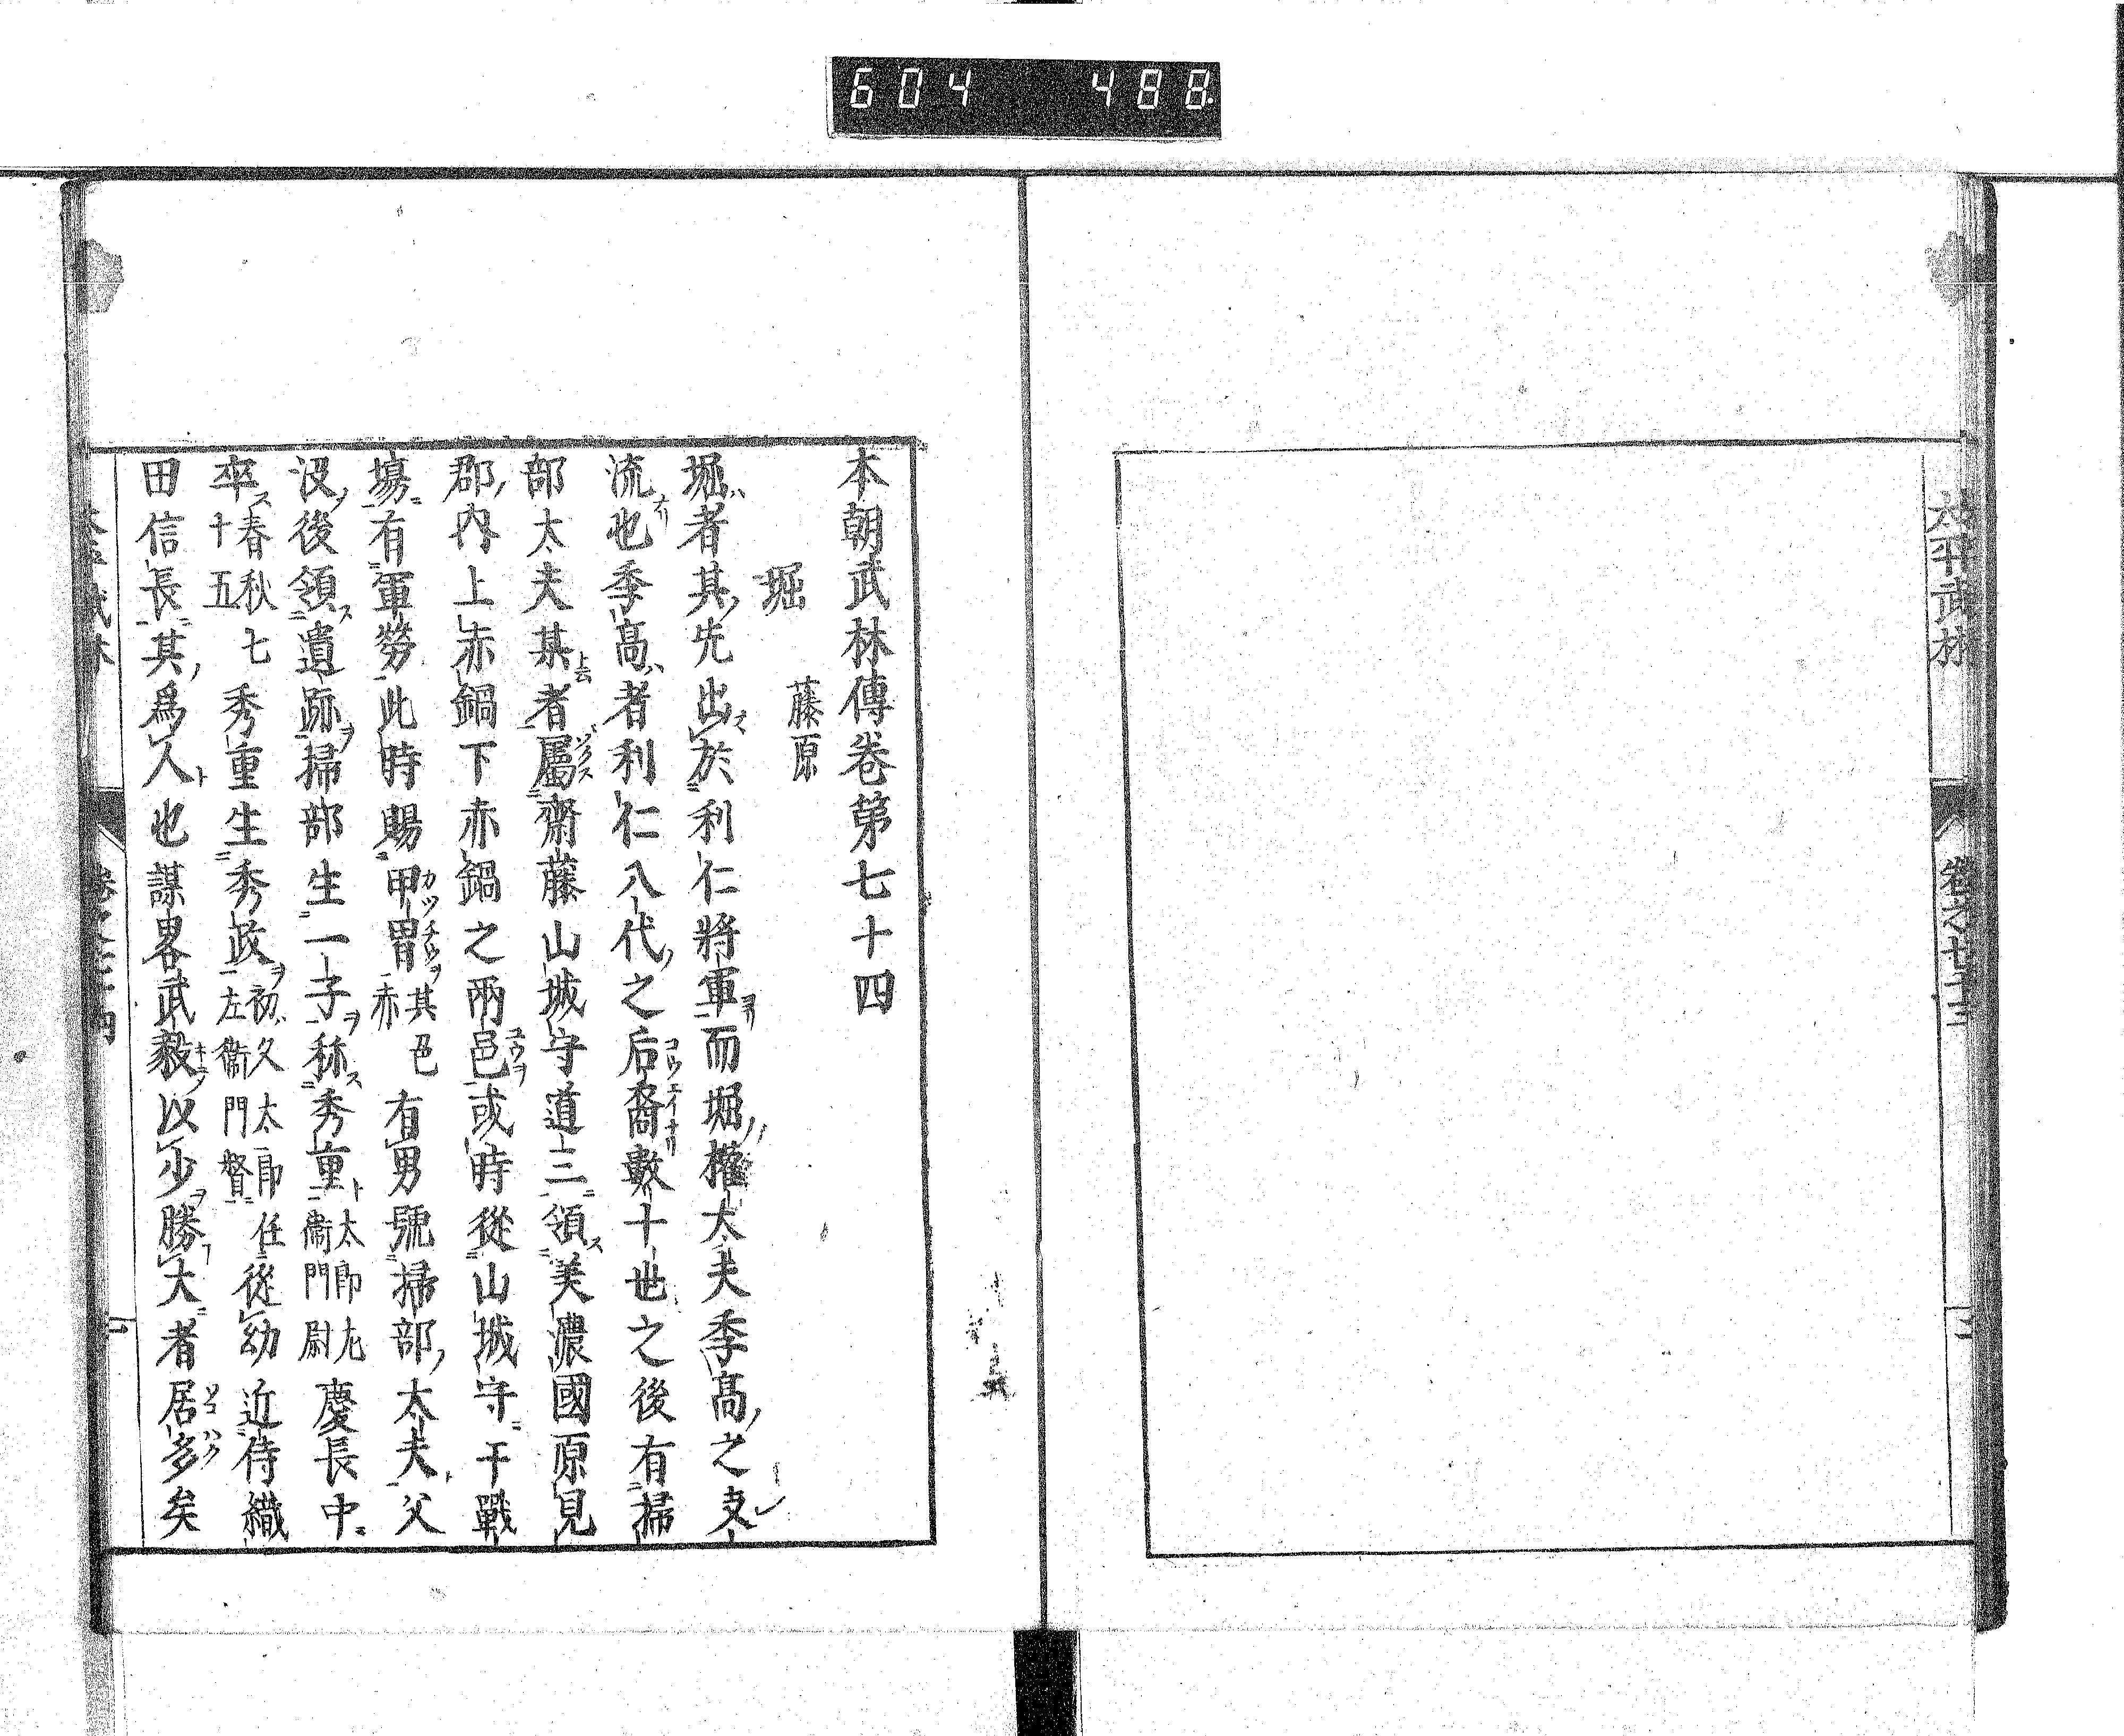 604 488.
太平武林 卷之七十三
本朝武林傳卷第七十四
堀 藤原
堀者其先出於利仁將軍而堀權太夫季高之支
流也季高者利仁八代之后裔數十世之後有掃
部太夫某者屬齋藤山城守道三領美濃國原見
郡內上赤鍋下赤鍋之兩邑或時從山城守干戰
塲有軍勞此時賜甲冑其色赤有男號掃部太夫父
沒後領遺跡掃部生一子称秀重太郎左衞門尉慶長中
卒春秋七十五秀重生秀政初久太郎任左衞門督從幼近侍織
田信長其爲人也謀畧武毅以少勝大者居多矣